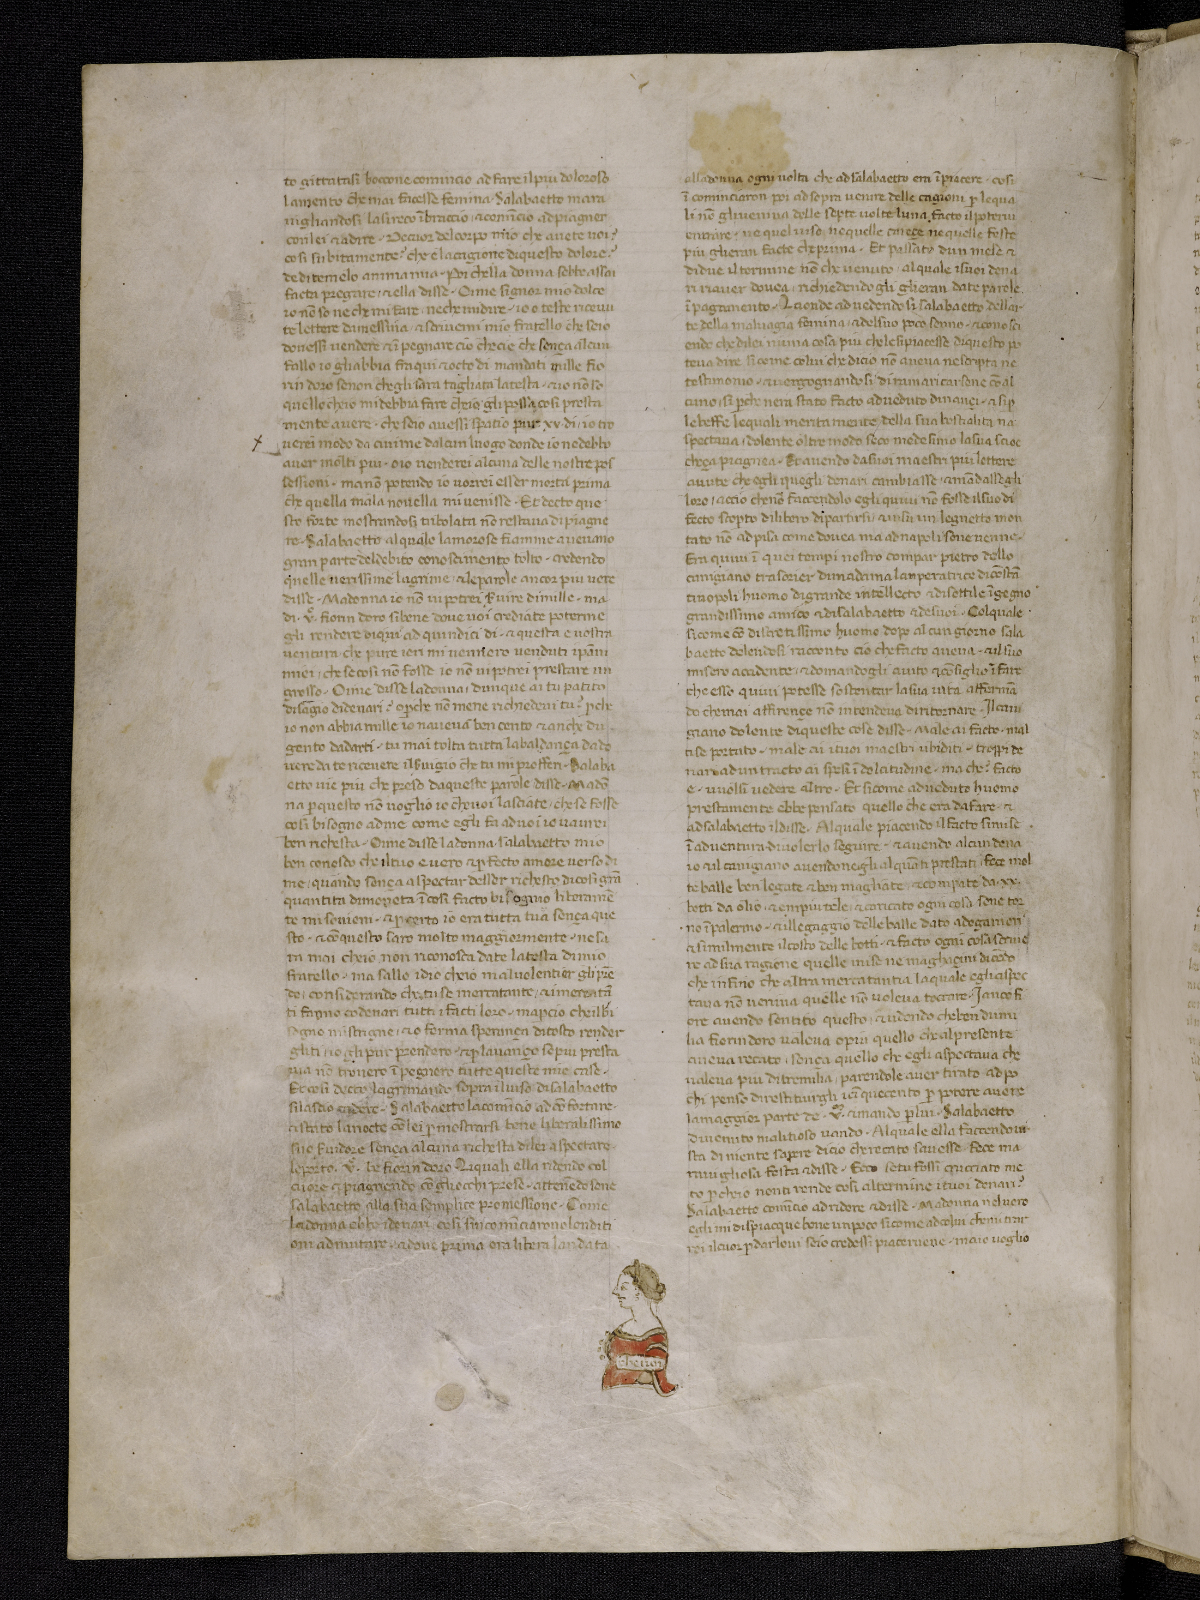 to gittatasi boccone comincio ad fare il piu doloroso
lamento che mai facesse femina · Salabaetto mara
uigliandosi la si reco ī braccio · ⁊ comīcio ad piagner
con lei ⁊ a dire · O cuor del corpo mio che auete uoi ?
cosi subitamente ? che e la cagione di questo dolore ?
de ditemelo anima mia · Poi che la donna sebbe assai
facta pregare · ⁊ ella disse · Oime signor mio dolce
io nō so ne che mi fare · ne che mi dire · io o teste riceuu
te lettere da messina · ⁊ scriuemi mio fratello che se io
douessi uendere ⁊ ī pegnare cio che ci e che sença alcun
fallo io gli abbia fra qui ⁊ octo di mandati mille fio
rin doro se non che gli sara tagliata la testa · ⁊ io nō so
quello chio mi debbia fare che io gli possa cosi presta
mente auere · che se io auessi spatio pur xv · di · io tro
uerei modo da ciuirne dalcun luogo donde io ne debbo
auer molti piu · o io uenderei alcuna delle nostre pos
sessioni · ma nō potendo io uorrei esser morta prima
che quella mala nouella mi uenisse · Et decto que
sto forte mostrandosi tribolata nō restaua di piagne
re · Salabaetto al quale lamorose fiamme aueuano
gran parte del debito conoscimento tolto · credendo
quelle uerissime lagrime · ⁊ le parole ancor piu uere
disse · Madonna io nō ui potrei s̄uire di mille · ma
di · v̄ · fiorin doro si bene doue uoi crediate poterme
gli rendere di qui ad quindici di · ⁊ questa e uostra
uentura che pure ieri mi uennero uenduti i pāni
miei · che se cosi nō fosse io nō ui potrei prestare un
grosso · Oime disse la donna · dunque ai tu patito
disagio di denari ? o p̄che nō me ne richiedeui tu ? p̄che
io non abbia mille io naueua ben cento ⁊ anche du
gento da darti · tu mai tolta tutta la baldança da do
uere da te riceuere il s̄uigio che tu mi profferi · Salaba
etto uie piu che preso da queste parole disse · Madō
na p questo nō uoglio io che uoi lasciate · che se fosse
cosi bisogno ad me come egli fa ad uoi io uaurei
ben richesta · Oime disse la donna · Salabaetto mio
ben conosco che il tuo e uero ⁊ p̄fecto amore uerso di
me · quando sença aspectar desser richesto di cosi grā
quantita di moneta ī cosi facto bisogno liberamē
te mi souieni · ⁊ p certo io era tutta tua sença que
sto · ⁊ cō questo saro molto maggiormente · ne sa
ra mai che io non riconosca da te la testa di mio
fratello · ma sallo idio che io mal uolentier gli prē
do · considerando che tu se mercatante · ⁊ i mercatā
ti fanno co denari tutti i facti loro · ma p cio che il bi
sogno mi strigne · ⁊ o ferma sperança di tosto render
gliti · io gli pur prendero · ⁊ p lauanço se piu presta
uia nō trouero ī pegnero tutte queste mie case ·
Et cosi decto lagrimando sopra il uiso di salabaetto
si lascio cadere · Salabaetto la comīcio ad cōfortare ·
⁊ stato la nocte cō lei p mostrarsi bene liberalissimo
suo s̄uidore sença alcuna richesta di lei aspectare ·
le porto · v̄ · be fiorin doro · Li quali ella ridendo col
cuore ⁊ piagnendo cō gliocchi prese · attenēdosene
salabaetto alla sua semplice promessione · Come
la donna ebbe i denari · cosi si ī cominciarono le ndicti
oni ad mutare · ⁊ doue prima era libera landata
alla donna ogni uolta che ad salabaetto era ī piacere · cosi
ī cominciaron poi ad sopra uenire delle cagioni p le qua
li nō gli ueniua delle septe uolte luna facto il poterui
entrare · ne quel uiso · ne quelle careçe ne quelle feste
piu gheran facte che prima · Et passato dun mese ⁊
di due il termine nō che uenuto · al quale i suoi dena
ri riauer douea · richiedendogli gli eran date parole
ī pagamento · Laonde ad uedendosi salabaetto dellar
te della maluagia femina · ⁊ del suo poco senno · ⁊ conosci
endo che di lei niuna cosa piu che le si piacesse di questo po
teua dire si come colui che di cio nō aueua ne scripta ne
testimonio · ⁊ uergognandosi di ramaricarsene cō al
cuno · si p̄che nera stato facto adueduto dinançi · ⁊ si p
le beffe le quali meritamente della sua bestialita na
spectaua · dolente oltre modo seco medesimo la sua scioc
cheça piagnea · Et auendo da suoi maestri piu lettere
auute che egli quegli denari cambiasse · ⁊ mādassegli
loro · accio che nō faccendolo egli quiui nō fosse il suo di
fecto scoperto dilibero di partirsi · ⁊ in su un legnetto mon
tato nō ad pisa come douea ma ad napoli sene uenne ·
Era quiui ī quei tempi nostro compar pietro dello
canigiano trasorier di madama lanperatrice di costā
tinopoli huomo di grande intellecto ⁊ di sottile īgegno
grandissimo amico ⁊ di salabaetto ⁊ de suoi · Col quale
si come cō discretissimo huomo dopo alcun giorno sala
baetto dolendosi racconto cio che facto aueua · ⁊ il suo
misero accidente · ⁊ domandogli aiuto ⁊ cōsiglio ī fare
che esso quiui potesse sostentar la sua uita affermā
do che mai ad firençe nō intendeua di ritornare · Il cani
giano dolente di queste cose disse · Male ai facto · mal
ti se portato · male ai i tuoi maestri ubiditi · troppi de
nari ad un tracto ai spesi ī dolcitudine · ma che ? facto
e · uuolsi uedere altro · Et si come adueduto huomo
prestamente ebbe pensato quello che era da fare · ⁊
ad salabaetto il disse · Al quale piacendo il facto si mise
ī aduentura di uolerlo seguire · ⁊ auendo alcun dena
io ⁊ il canigiano auendonegli alquāti prestati · fece mol
te balle ben legate ⁊ ben magliate · ⁊ comperate da · xx ·
botti da olio · ⁊ empiutele · ⁊ caricato ogni cosa sene tor
no ī palermo · ⁊ il legaggio delle balle dato a doganieri
⁊ similmente il costo delle botti · ⁊ facto ogni cosa scriue
re ad sua ragione quelle mise ne magaçini dicēdo
che infino che altra mercatantia la quale egli aspec
taua nō ueniua quelle nō uoleua toccare · Iancofi
ore auendo sentito questo · ⁊ udendo che ben dumi
lia fiorin doro ualeua o piu quello che al presente
aueua recato · sença quello che egli aspectaua che
ualeua piu di tremilia · parendole auer tirato ad po
chi penso di restituirgli i cīquecento p potere auere
la maggior parte de · v̄ · ⁊ mando p lui · Salabaetto
diuenuto malitioso uando · Al quale ella faccendo ui
sta di niente sapere di cio che recato sauesse · fece ma
rauigliosa festa ⁊ disse · Ecco se tu fossi crucciato me
co p̄che io non ti rende cosi al termine i tuoi denari ?
Salabaetto comīcio ad ridere ⁊ disse · Madonna nel uero
egli mi dispiacque bene un poco si come ad colui che mi trar
rei il cuor p darloui se io credessi piaceruene · ma io uoglio
che uoi